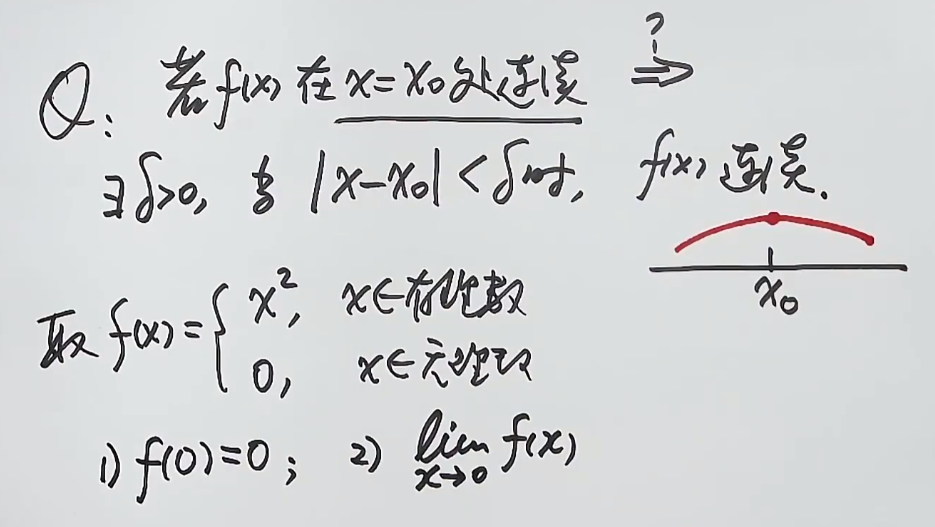 Q: 若f(x)在x=x₀处连续 ?⇒
∃δ>0, 当 |x-x₀|<δ时, f(x)连续.
x₀
取 f(x)={ x², x∈有理数
0, x∈无理数
1) f(0)=0; 2) lim x→0 f(x)